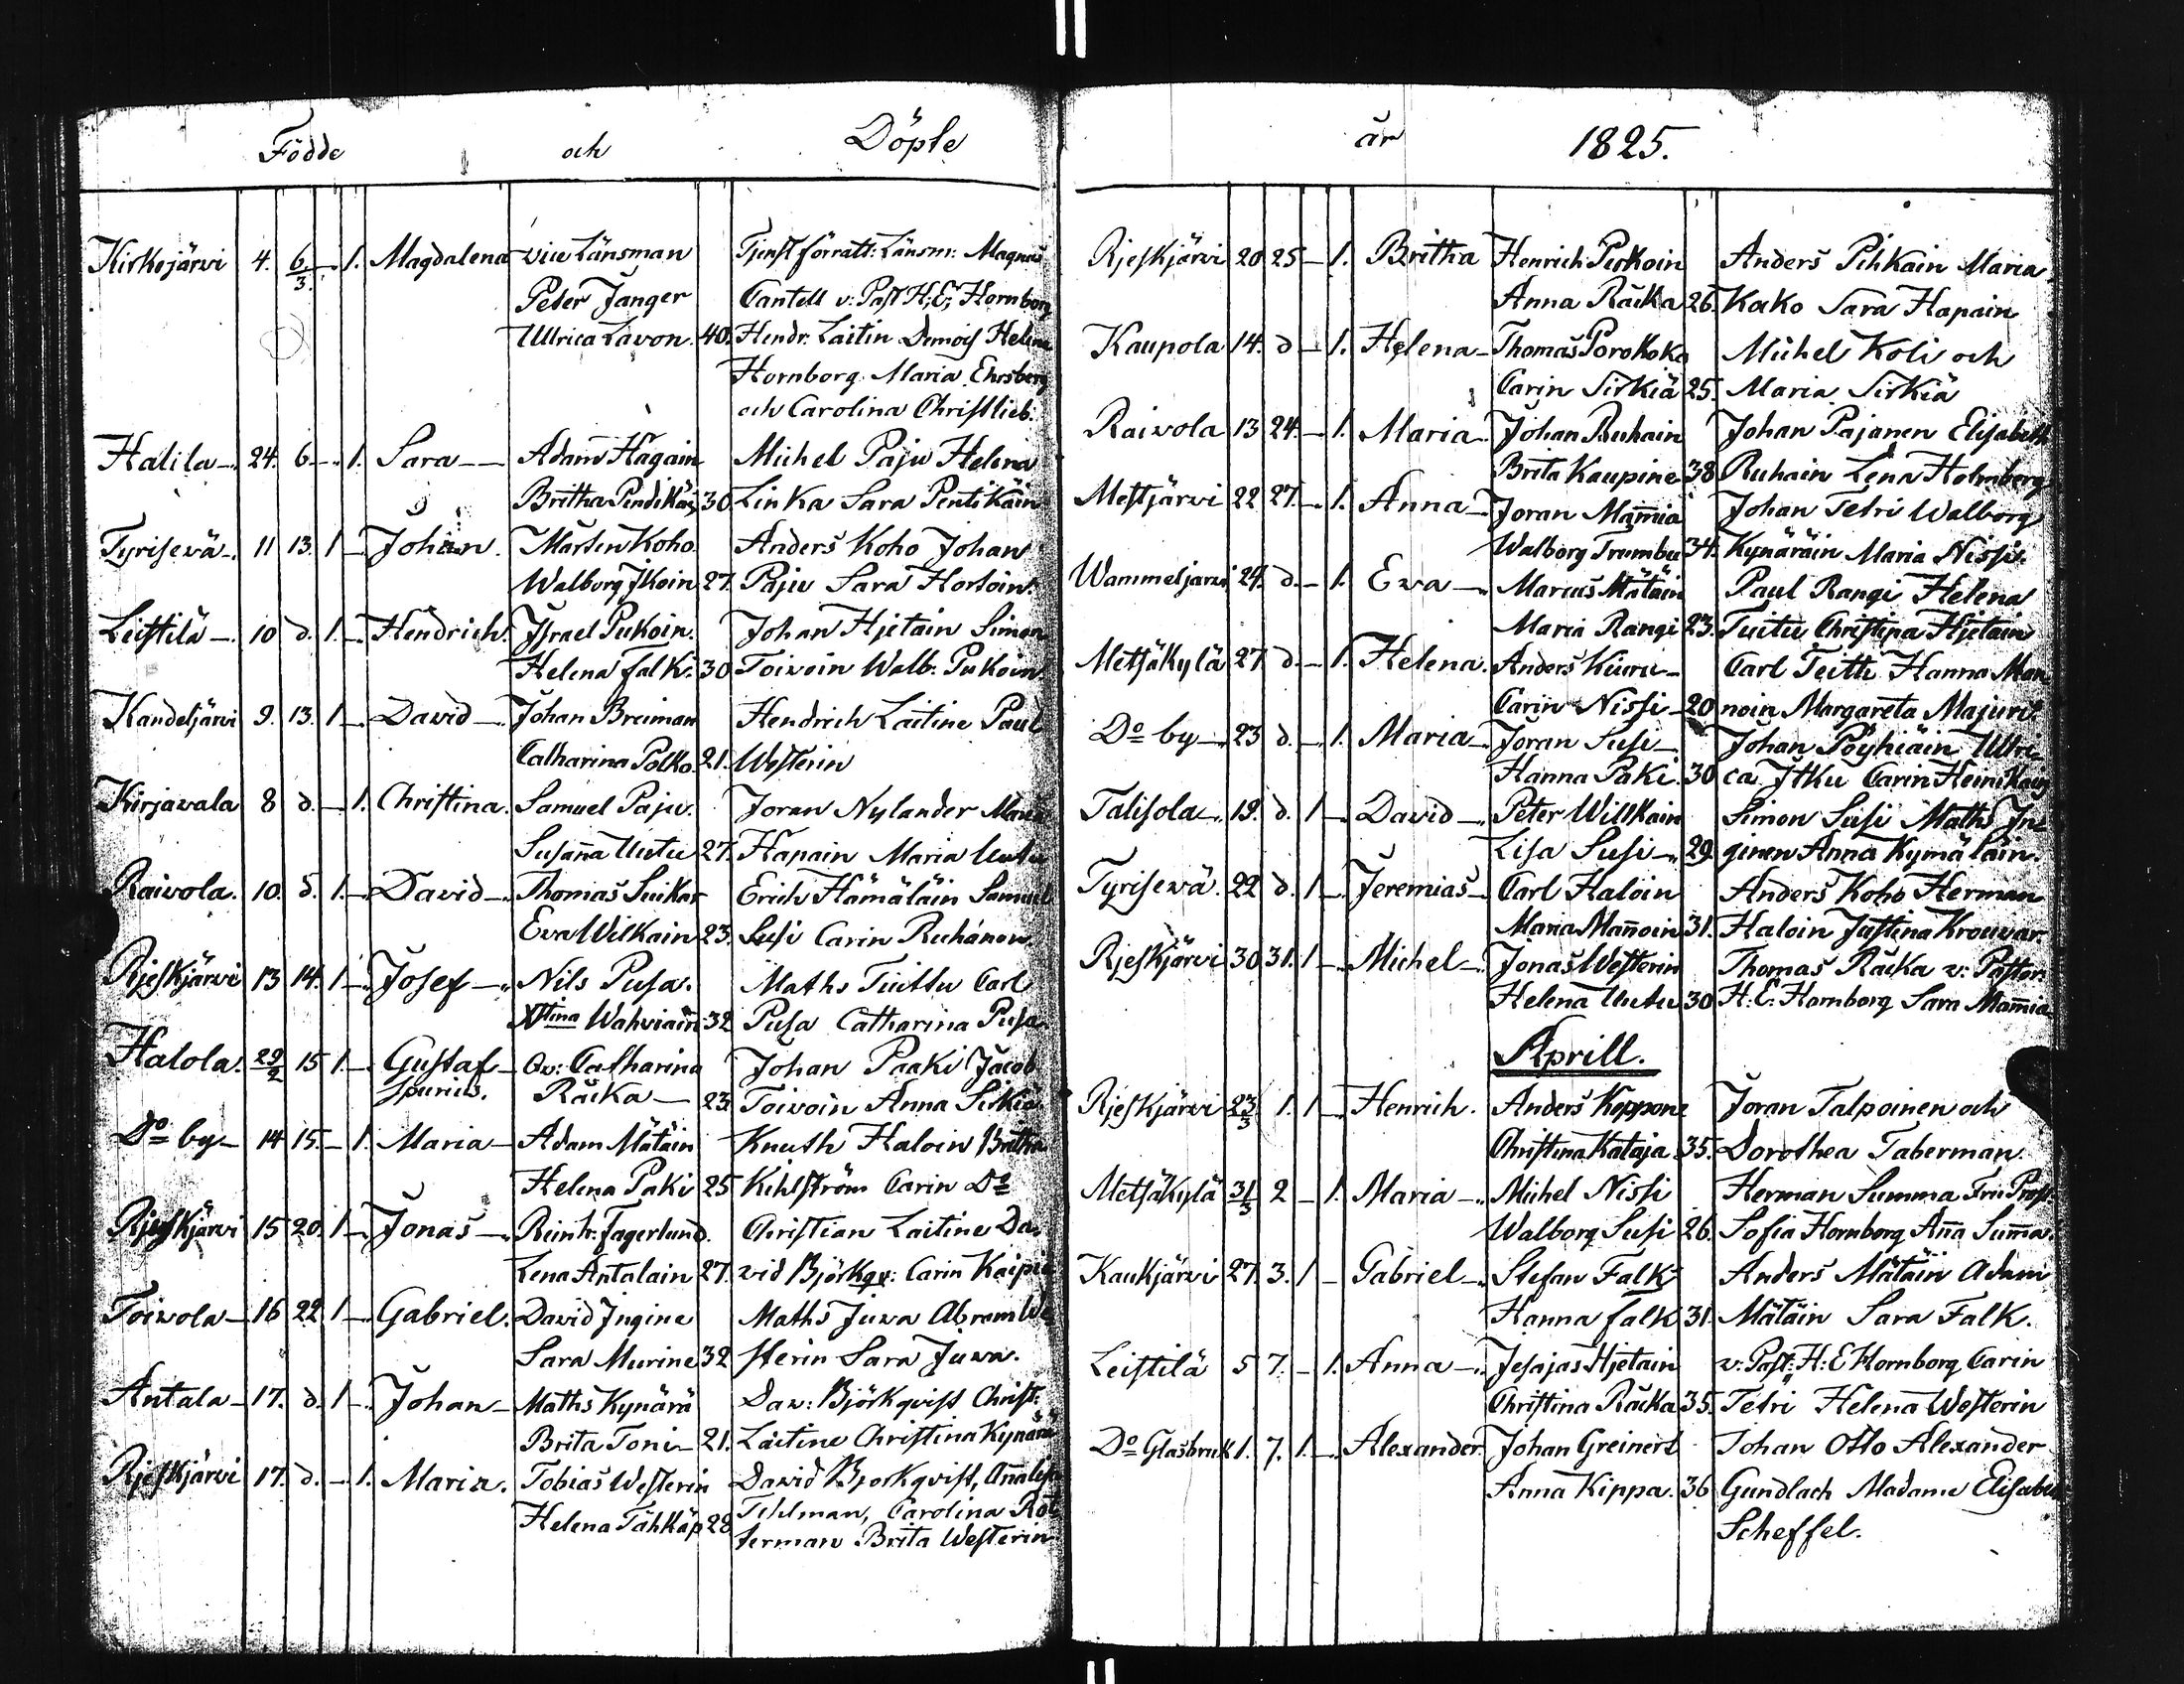 Födde och Döpte
Kirkojärvi 4. 6/3. – 1. Magdalena vice Länsman Tjenst förrätt: Länsm: Magnus
Peter Janger Cantell v: Past H: E; Hornborg
Ullrica Lavon. 40. Hendr. Laitin Demois Helena
Hornborg Maria Ehrsberg
och Carolina Christlieb.
Halila – 24. 6. – 1. Sara – Adam Hagain Michel Paju Helena
Britha Pendikäin 30 Linka Sara Pentikäin
Tyrisevä – 11 13. 1 – Johan. Mårten Koho Anders Koho Johan
Walborg Ikoin 27. Paju Sara Hortoin.
Leistilä – 10 d. 1. – Hendrich. Israel Pukoin. Johan Hjetain Simon
Helena Falk. 30 Toivoin Walb: Pukoin
Kandeljärvi 9. 13. 1 – David – Johan Breiman Hendrich Laitine Paul
Catharina Polko. 21. Westerin
Kirjavala 8 d. – 1. Christina. Samuel Paju. Joran Nylander Maria
Susanna Uutu 27. Hapain Maria Uutu
Raivola. 10. d. 1. – David – Thomas Suikar Erich Hämäläin Samuel
Eva Wilkain 23. Susi Carin Ruhanen
Rjeskjärvi 13 14. 1 – Josef – Nils Pusa. Maths Tuittu Carl
Xtina Wahviain 32 Pusa Catharina Pusa
Halola. 29/2 15 1. – Gustaf – Qv: Catharina Johan Paaki Jacob
spurius. Räcka – 23. Toivoin Anna Sirkiä
Do by – 14 15. – 1. Maria – Adam Mätäin Knuth Haloin Britha
Helena Paki 25 Kihlström Carin Do
Rjeskjärvi 15 20. 1 – Jonas – Reinh: Fagerlund. Christian Laitine Da-
Lena Antalain 27. vid Björkqv: Carin Kaipia
Toivola – 16 22 1 – Gabriel. David Ingine Maths Juva Abram We
Sara Murine 32 sterin Sara Juva.
Antala – 17. d. 1 – Johan – Maths Kynärä Dav: Björkqvist Christ:
Brita Toni – 21. Laitine Christina Kynärä
Rjeskjärvi 17. d. – 1. Maria. Tobias Westerin David Bjorkqvist, Annalisa
Helena Tähkäp 28 Tihlman, Carolina Rot
terman Brita Westerin
år 1825.
Rjeskjärvi 20 25 – 1. Britha Henrich Pirkoin Anders Pihkain Maria
Anna Räcka 26. Kako Sara Hapain
Kaupola 14. d – 1. Helena – Thomas Porokoka Michel Koli och
Carin Sirkiä 25. Maria Sirkiä
Raivola 13 24. – 1. Maria. Johan Ruhain Johan Pajanen Elisabeth
Brita Kaupine 38 Ruhain Lena Holmberg
Mestjärvi 22 27. – 1. Anna – Joran Mamia Johan Tetri Walborg
Walborg Trumbu 34. Kynäräin Maria Nissi.
Wammeljarvi 24. d. – 1. Eva – Marcus Mätäin Paul Rangi Helena
Maria Rangi 23. Tuitu Christina Hjetain
Metsäkylä 27 d. – 1. Helena. Anders Kiuru – Carl Teittu Hanna Man
Carin Nissi – 20 noin Margareta Majuri.
Do by – 23 d. – 1. Maria – Joran Susi – Johan Pöyhiäin Ulri
Hanna Paki. 30 ca Itku Carin Heinikain
Talisola – 19. d. 1 – David – Peter Willkain Simon Susi Maths In-
Lisa Susi – 29 ginen Anna Kymäläin.
Tyrisevä. 22 d. 1 – Jeremias – Carl Haloin Anders Koho Herman
Maria Mannoin 31. Haloin Justina Krouvar
Rjeskjärvi 30 31. 1 – Michel – Jonas Westerin Thomas Räcka v: Pastor
Helena Uutu 30 H: E: Hornborg Sara Mamia
Aprill.
Rjeskjärvi 23/3 1. 1 – Henrich. Anders Koppone Joran Talpoinen och
Christina Kataja 35. Dorothea Taberman
Metsäkylä 31/3 2 – 1. Maria – Michel Nissi Herman Summa Fru Prost.
Walborg Susi 26. Sofia Hornborg Anna Summa.
Kaukjärvi 27. 3. 1 – Gabriel – Stefan Falk Anders Mätäin Adam
Hanna Falk 31. Mätäin Sara Falk.
Leistilä 5 7. – 1. Anna – Jesajas Hjetain v: Past: H: E Hornborg Carin
Christina Räcka 35. Tetri Helena Westerin
Do Glasbruk 1. 7. 1. – Alexander. Johan Greinert Johan Otto Alexander
Anna Kippa. 36 Gundlach Madame Elisabet
Scheffel.